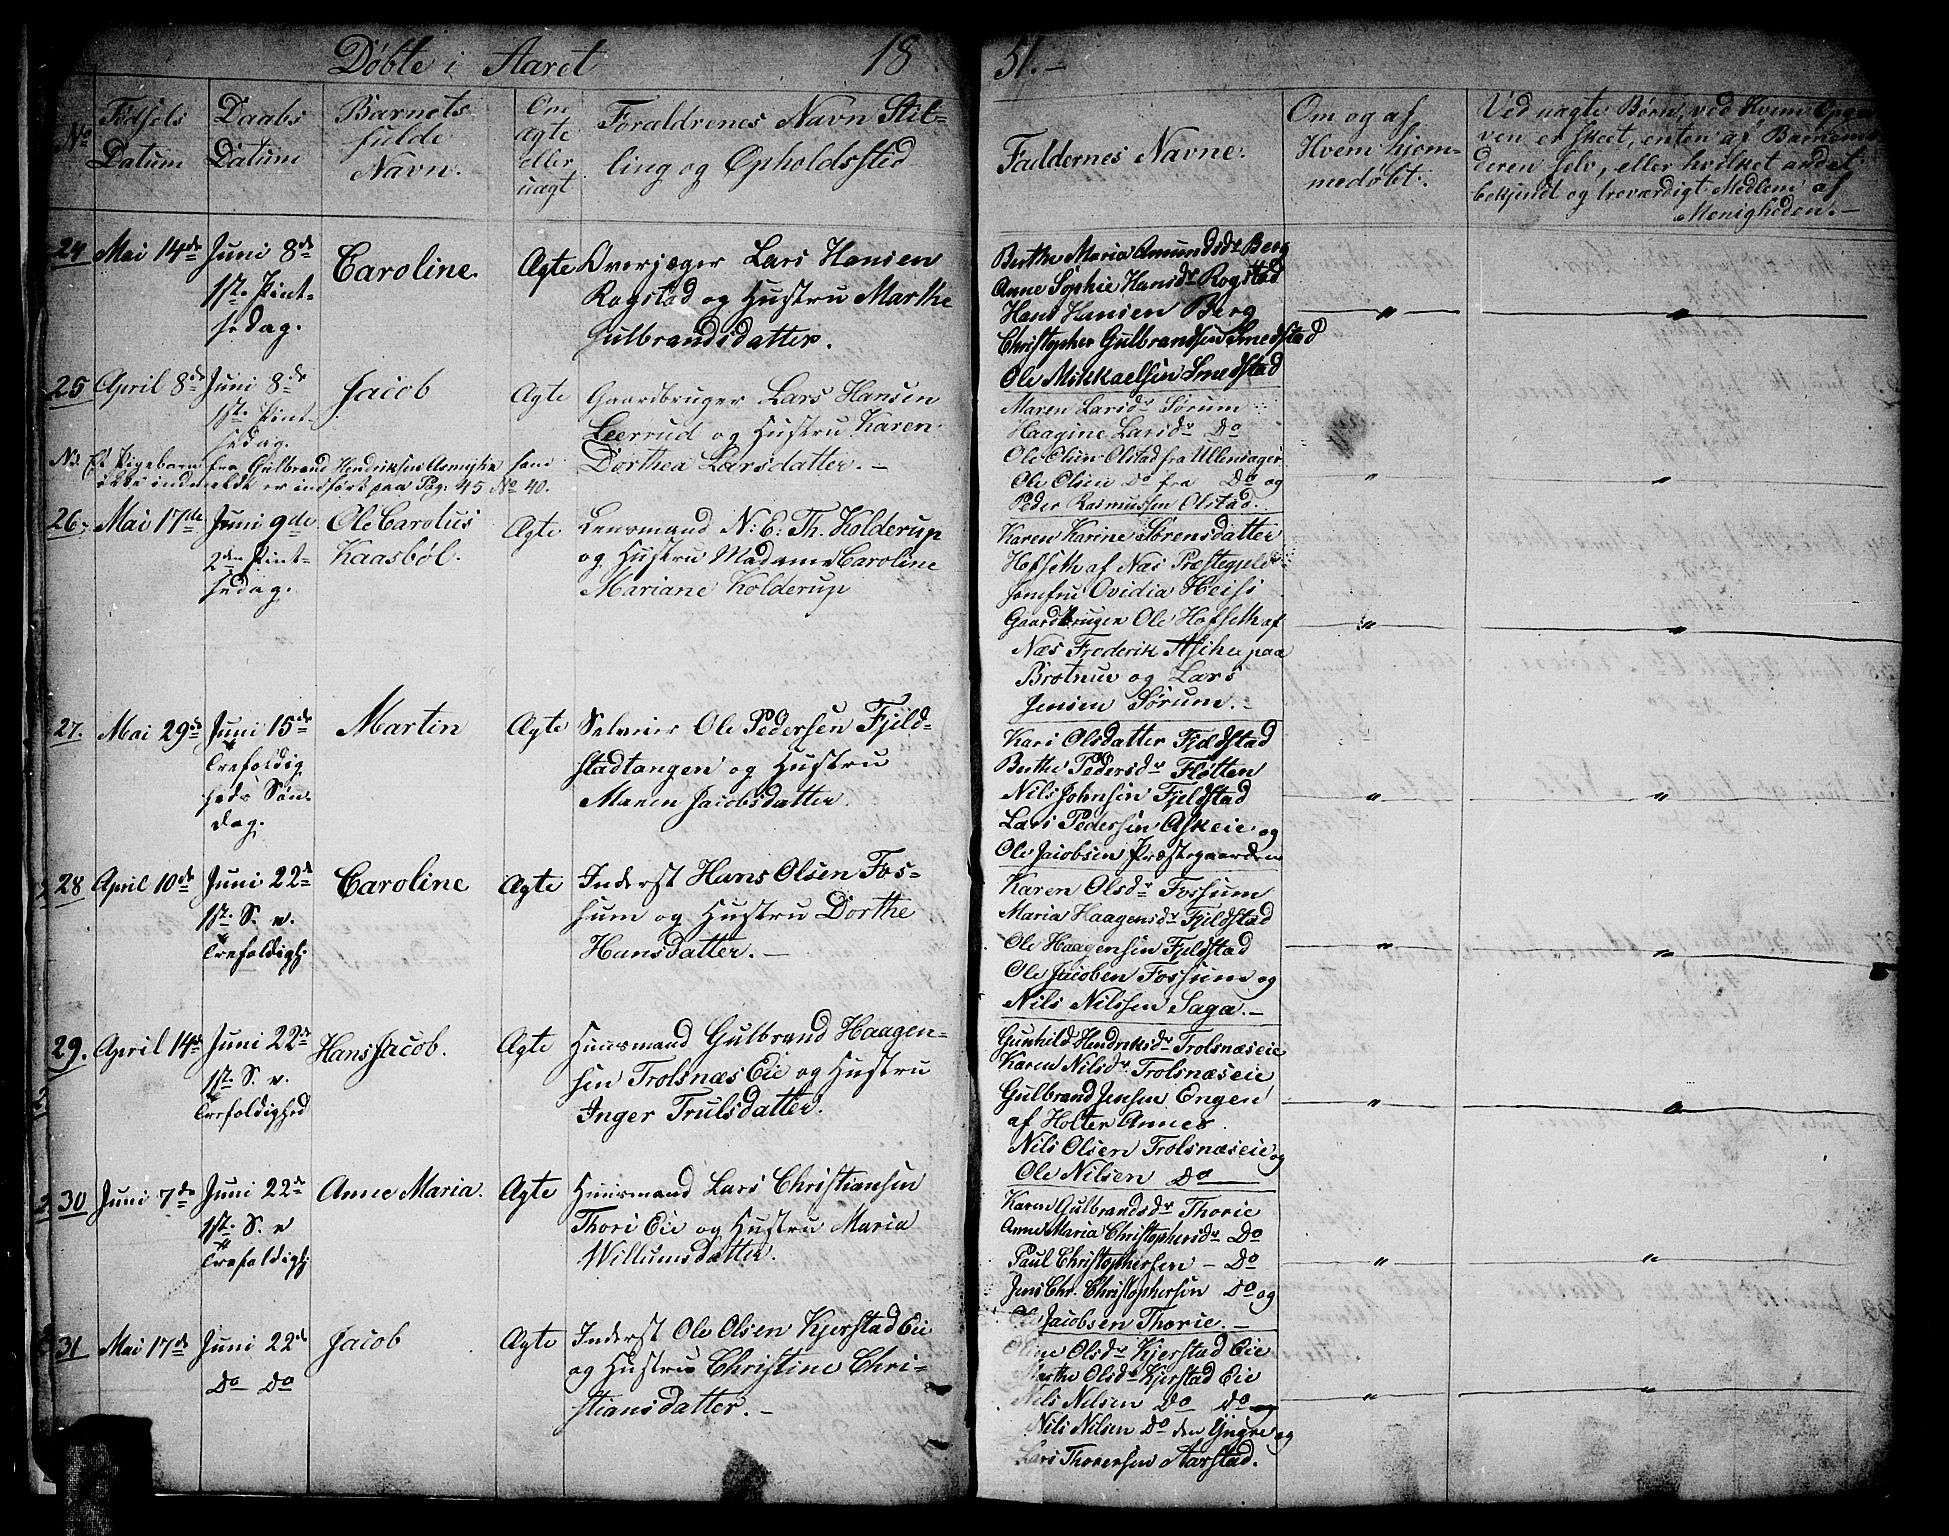 Døbte i Aaret 1851.-
No
Fødsels Datum
Daabs Datum
Barnets fulde Navn.
Om ægte eller uægt
Forældrenes Navn Stil-
ling og Opholdssted
Faddernes Navne.
Om og af Hvem hjem-
medøbt.
Ved uagte Børn, ved Hvem Opga
ven er skeet, enten af Barnemo
deren selv, eller hvilket andet
bekjendt og troværdigt Medlem af
Menigheden.-
24 Mai 14de Juni 8de Caroline. Ægte Overjæger Lars Hansen
1ste Pint- Rogstad og Hustru Marthe
sedag. Gulbrandsdatter.
Berthe Maria Amundsdr Berg
Anne Sophie Hansdr Rogstad
Hans Hansen Berg
Christopher Gulbrandsen Smedstad
Ole Mikkaelsen Smedstad
25 April 8de Juni 8de Jacob Ægte Gaardbruger Lars Hansen
1ste Pint- Leerrud og Hustru Karen
sedag. Dorthea Larsdatter.-
Maren Larsdr Sørum
Haagine Larsdr Do
Ole Olsen Olstad fra Ullensager
Ole Olsen Do fra Do og
Peder Rasmussen Olstad.
NB. Et Pigebarn fra Gulbrand Hendriksen som
ikke indmeldt er indført paa Pag. 45 No 40.
26. Mai 17de Juni 9de Ole Carolus Ægte Lensmand N: E: Th. Kolderup
2den Pint- Kaasbøl. og Hustru Madame Caroline
sedag. Mariane Kolderup
Karen Karine Sørensdatter
Hofseth af Næs Præstegjeld
Jomfru Ovidia Heiss
Gaardbrugen Ole Hofseth af
Næs Frederik paa
og Lars
Jensen Sørum.-
27. Mai 29de Juni 15de Martin Ægte Selveier Ole Pedersen Fjeld-
Trefoldig stadtangen og Hustru
heds Søn- Maren Jacobsdatter.
dag.
Kari Olsdatter Fjeldstad
Berthe Pedersdr Fløtten
Nils Johnsen Fjeldstad
Lars Pedersen Askeie og
Ole Jacobsen Præstegaarden
28 April 10de Juni 22de Caroline Ægte Inderst Hans Olsen Fos-
1st. S. e. sum og Hustru Dorthe
Trefoldigh. Hansdatter.-
Karen Olsdr Fossum
Maria Haagensdr Fjeldstad
Ole Haagensen Fjeldstad
Ole Jacoben Fossum og
Nils Nilssen Saga.-
29. April 14de Juni 22de Hans Jacob. Ægte Huusmand Gulbrand Haagen-
1st. S. e. sen Trolsnæs Eie og Hustru
Trefoldighed Inger Trulsdatter.
Gunhild Hendriksdr Trolsnæseie
Karen Nilsdr Trolsnæseie
Gulbrand Jensen Engen
af Holter Annex
Nils Olsen Trolsnæseie og
Ole Nilsen Do
30 Juni 7de Juni 22de Anne Maria. Ægte Huusmand Lars Christiansen
1st. S. e Thori Eie og Hustru Maria
Trefoldigh. Willumsdatter.
Karen Gulbrandsdr Thorie
Anne Maria Christophersdr Do
Paul Christophersen - Do
Jens Chr. Christophersen Do og
Ole Jacobsen Thorie.-
31 Mai 17de Juni 22de Jacob Ægte Inderst Ole Olsen Kjerstad Eie
Do Do og Hustru Christine Chri-
stiansdatter.-
Oline Olsdr Kjerstad Eie
Marthe Olsdr Kjerstad Eie
Nils Nilsen Do Do og
Nils Nilsen Do den Yngre og
Lars Thoresen Aarstad.